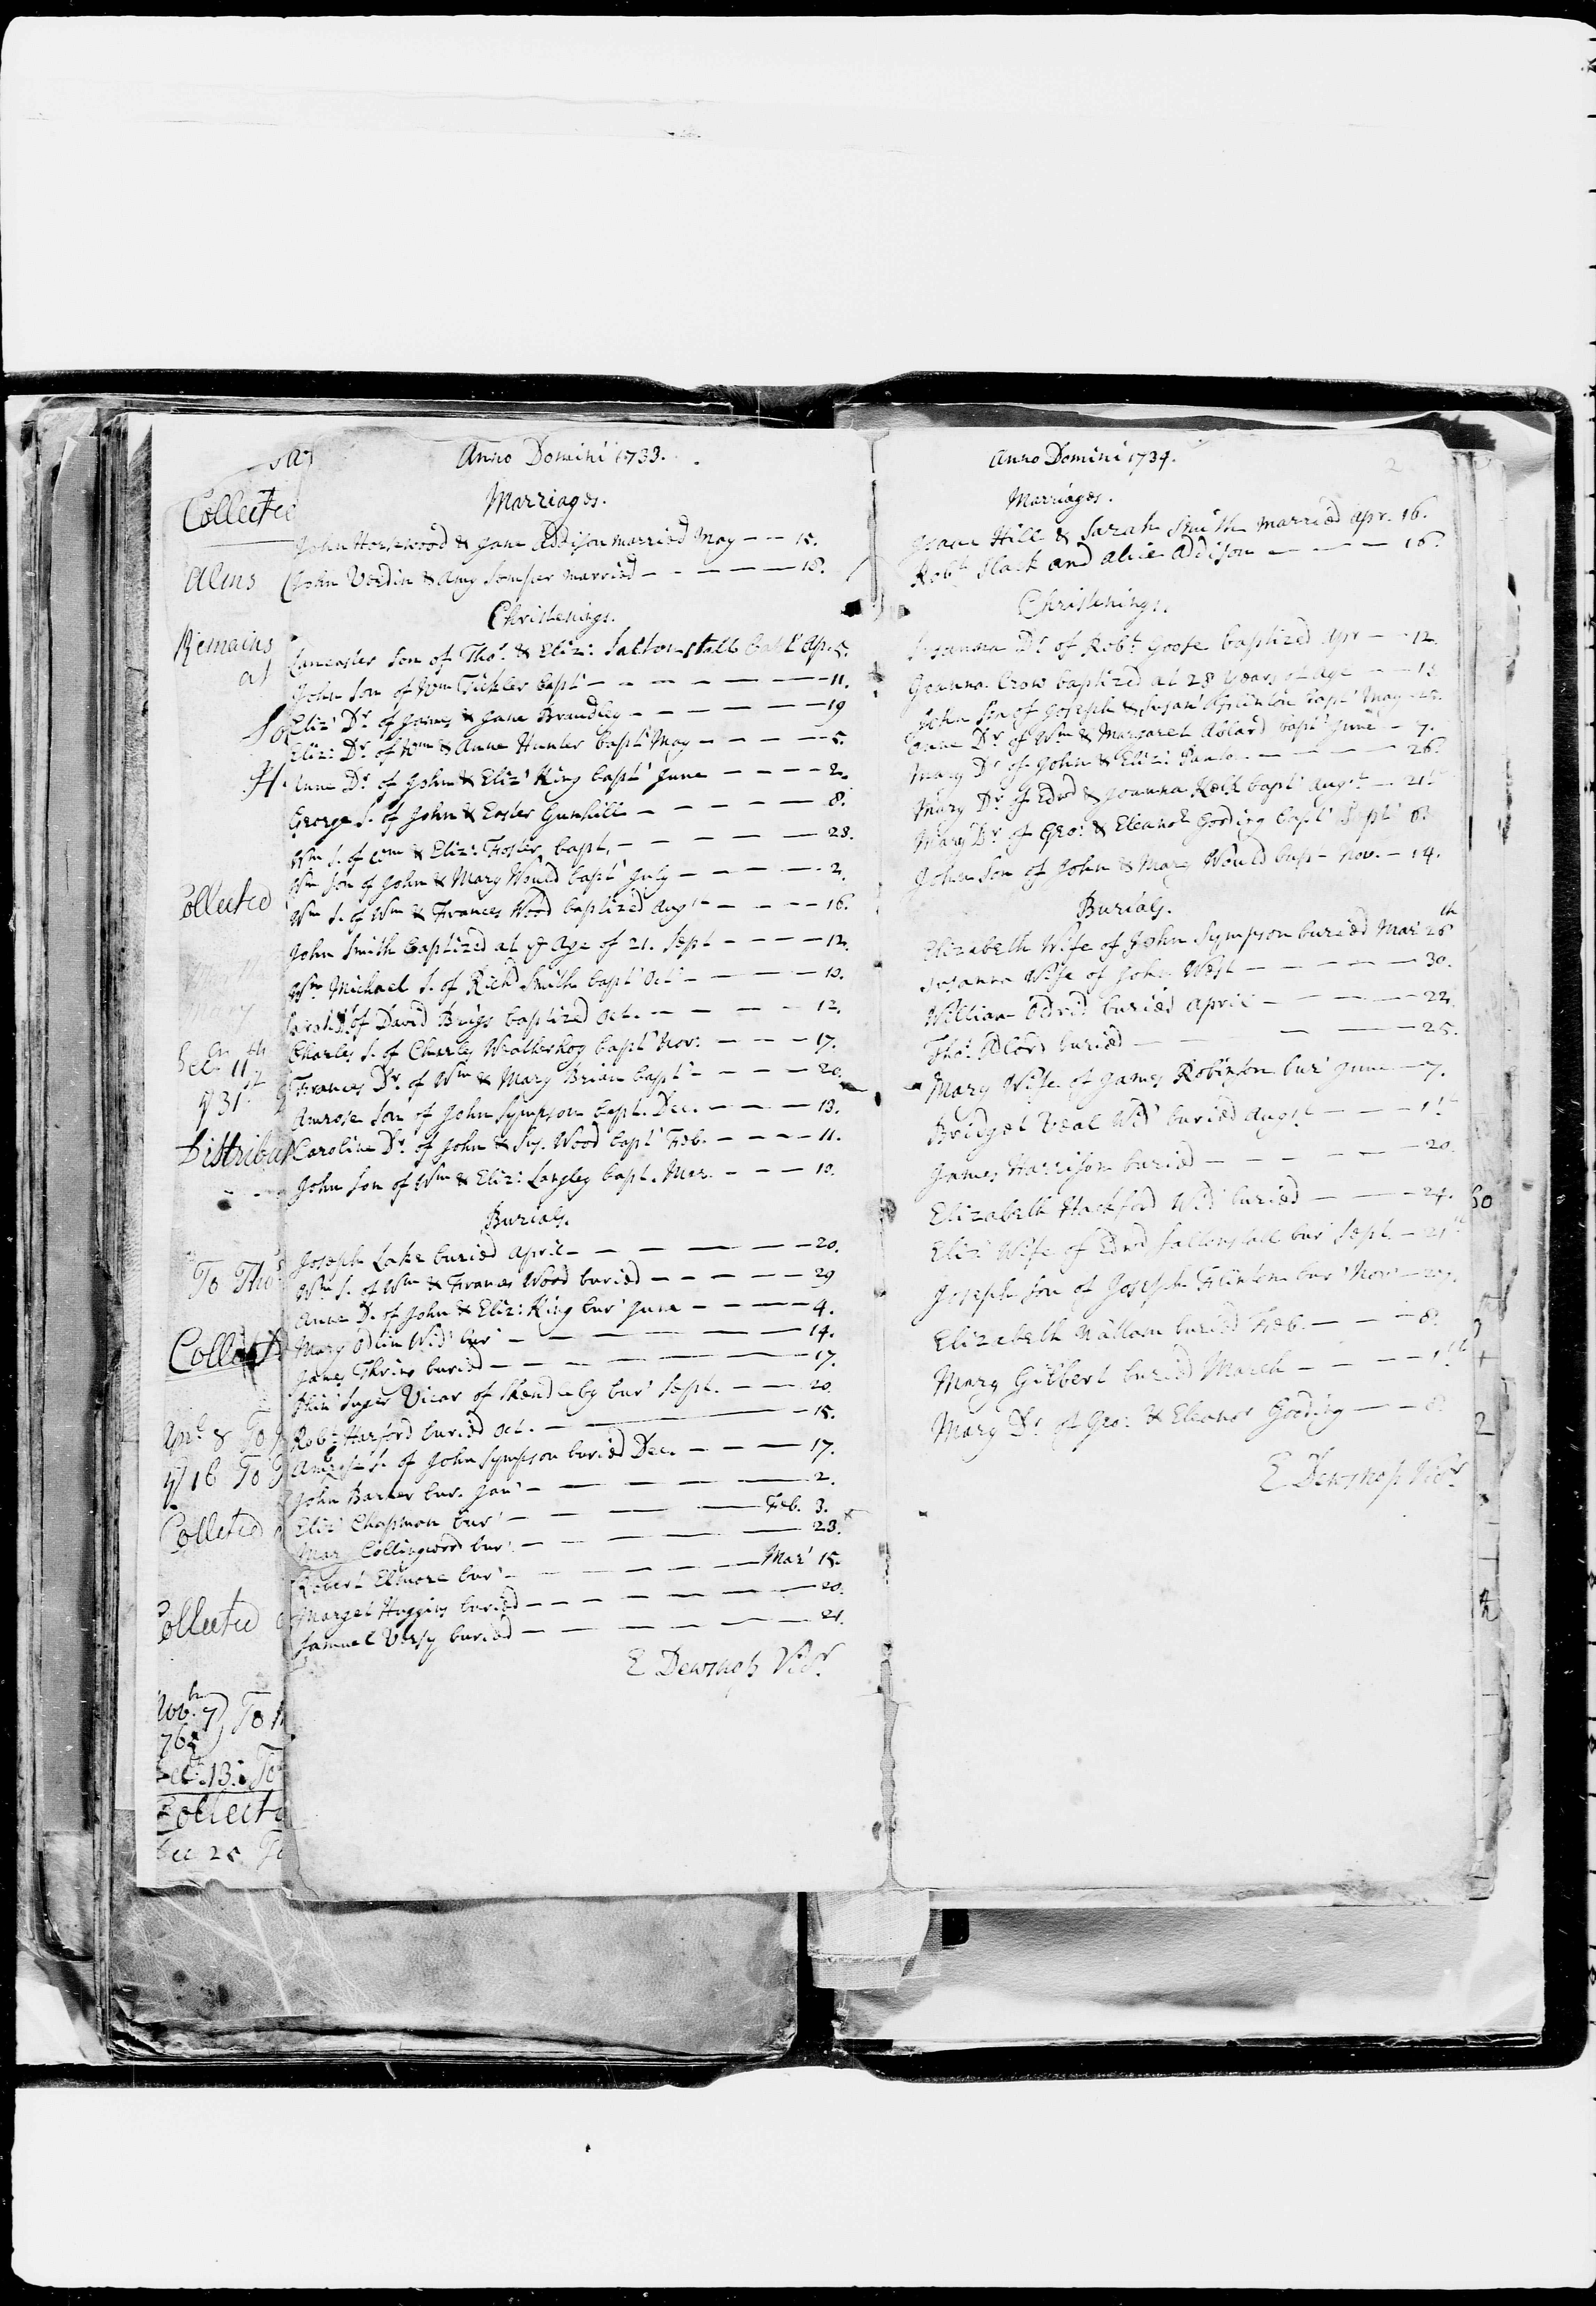 Anno Domini 1733.
Marriages.
John Horsewood & Jane Addison married May — — 15.
John Verdin & Amy Semper married — — — — — 18.
Christenings.
Lancaster Son of Thos. & Eliz: Saltonstall bapt' Ap. 5.
John Son of Wm Tickler bapt' — — — — — — 11.
Eliz' Dr. of James & Jane Brandley — — — — — 19
Eliz: Dr. of Wm & Anne Hunter bapt' May — — — — 5.
Anne Dr. of John & Eliz' King bapt' June — — — — 2.
George S. of John & Easter Gunhill — — — — — — 8.
Wm S. of Wm & Eliz: Foster, bapt. — — — — — 28.
Wm Son of John & Mary Would bapt' July — — — — 2.
Wm S. of Wm & Frances Wood baptized Augt — — — — 16.
John Smith baptized at ye Age of 21. Sept — — — — 12.
Wm Michael S. of Richd Smith bapt' Oct' — — — — 10.
of David Brigs baptized Oct. — — — — 12.
Charles S. of Charles Weatherhog bapt' Nov: — — — 17.
Frances Dr. of Wm & Mary Brian bapt' — — — — 20.
Amrose Son of John Sympson bapt. Dec. — — — 13.
Caroline Dr. of John & Sus. Wood bapt' Feb. — — — — 11.
John Son of Wm & Eliz: Langley bapt. Mar. — — — 10.
Burials.
Joseph Lake buried April — — — — — — 20.
Wm S. of Wm & Frances Wood buried — — — — 29
Anne D. of John & Eliz: King bur' June — — — — 4.
Mary Odlin Wid' bur' — — — — — — 14.
James Thring buried — — — — — — — 17.
Super Vicar of Skendleby bur' Sept. — — 20.
Robt: Harford buried Oct. — — — — 15.
S. of John Sympson buried Dec. — — — 17.
John Barker bur. Jan' — — — — — — 2.
Eliz' Chapman bur' — — — — — Feb. 3.
Mary Collingwood bur' — — — — — — 23.
Robert Elsmore bur' — — — — — Mar' 15.
Marget Huggins buried — — — — — — 20.
Samuel buried — — — — — — 21.
E Dewsnop Vicr.
Collected
Alms
Remains
at
Collected
Decr 11th
Distribut
To Thos
Collect
Collected
Collected
Novbr 7
Collect
Dec 25
Anno Domini 1734.
Marriages.
Isaac Hill & Sarah Smith married Apr. 16.
Robt. Slack and Alice Addison — — — — 16.
Christenings.
Susanna Dr. of Robt. Goose baptized Apr — — 12.
Joanna Crow baptized at 28 Years of Age — — 13
John Son of Joseph & Susan' Flinton bapt' May
Anne Dr. of Wm & Margaret Ablard bapt' June — 7.
Mary Dr. of John & Eliz: — — — — 26.
Mary Dr. of Edwd & Joanna bapt' Augst — 21st
Mary Dr. of Geo: & Eleanor Gooding bapt' Sept' 8.
John Son of John & Mary Would bapt — Nov. — 14.
Burials.
Elizabeth Wife of John Sympson buried Mar' 26th
Susanna Wife of John West — — — — — 30.
William Odrid buried April — — — — — 22.
Thos. buried — — — — — — 25.
Mary Wife of James Robinson bur' June — 7.
Bridget Veal Wid' buried Augst — — — 1st
James Harrison buried — — — — — 20.
Elizabeth Hackford Wid' buried — — — 24.
Eliz' Wife of Edwd Saltonstall bur' Sept. — 21st
Joseph Son of Joseph Flinton bur' Nov'
Elizabeth Wattam buried Feb. — — — 8.
Mary Gilbert buried March — — — — 1st
Mary Dr. of Geo: & Eleanor Gooding — — 8.
E Dewsnop Vicr.